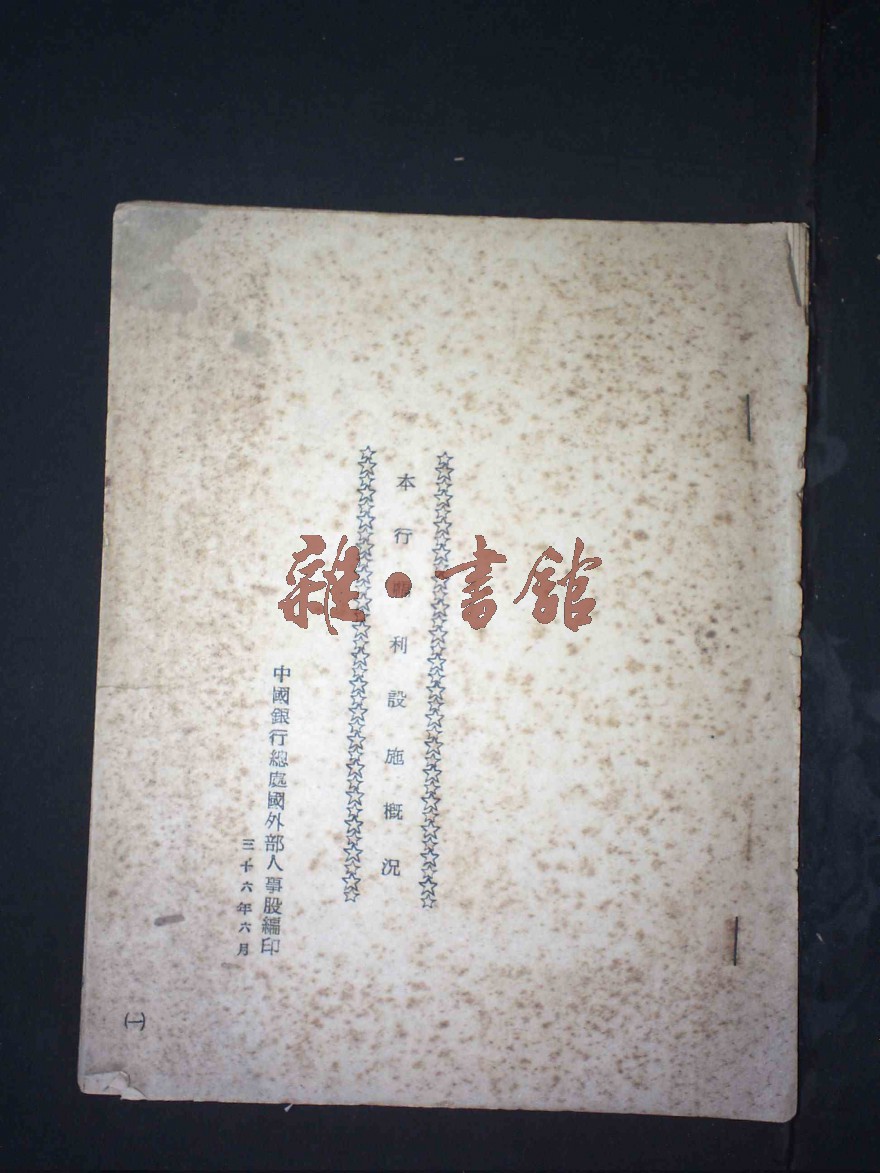 本行福利設施概況
中國銀行總處國外部人事股編印
三十六年六月
(一)
雜•書館